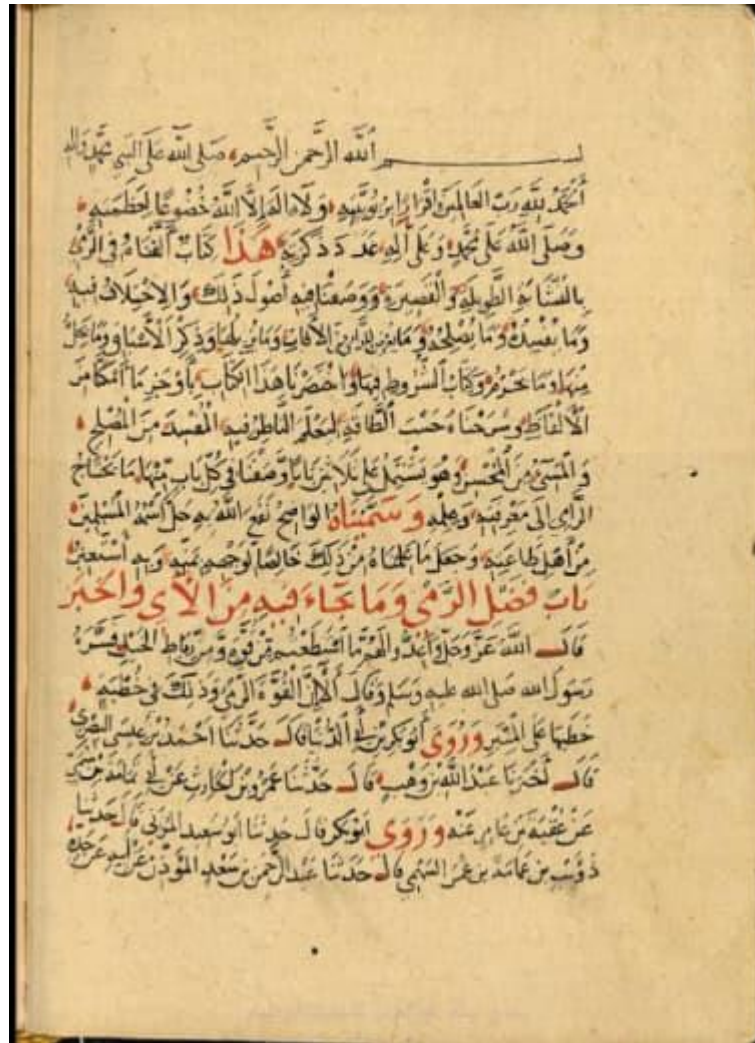 بسم الله الرحمن الرحيم صلى الله على النبي محمد واله
الحمد لله رب العالمين اقرارا بربوبيته ولا اله الا الله خضوعا لعظمته
وصلى الله على محمد وعلى اله عدد ذكره هذا كتاب ألفناه في الرمي
بالنشابة الطويلة والقصيرة ووصفنا فيه أصول ذلك والاختلاف فيه
وما يفسده وما يصلحه وما يعرض للرامي من الآفات وما يزيلها وذكر الأسباق وما يحل
منها وما يحرم وكتاب الشروط فيها واختصرنا هذا الكتاب بأوجز ما أمكنا من
الألفاظ وشرحناه حسب الطاقة ليعلم الناظر فيه المفسد من المصلح
والمسيء من المحسن وهو يشتمل على ثلاثين بابا وصفنا في كل باب منها ما يحتاج
الرامي إلى معرفته وعلمه وسميناه الواضح نفع الله به جل اسمه المسلمين
من أهل طاعته وجعل ما علمناه من ذلك خالصا لوجهه بمنه وبه أستعين
باب فضل الرمي وما جاء فيه من الآي والخبر
قال الله عز وجل وأعدوا لهم ما استطعتم من قوة ومن رباط الخيل وفسره
رسول الله صلى الله عليه وسلم وقال ألا إن القوة الرمي وذلك في خطبة
خطبها على المنبر وروى أبو بكر بن أبي الدنيا قال حدثنا احمد بن عيسى البصري
قال أخبرنا عبد الله بن وهب قال حدثنا عمرو بن الحارث عن أبي
عن عقبة بن عامر عنه وروى ابو بكر قال حدثنا ابو سعيد المزني قال حدثنا
ذؤيب بن عمامة بن عمر السهمي قال حدثنا عبد الرحمن بن سعد المؤذن عن أبيه عن جده